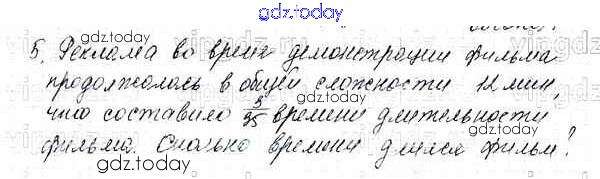 gdz.today
5. Реклама во время демонстрации фильма
gdz.today
продолжалась в общей сложности 12 мин,
gdz.today
что составило 3/25 времени длительности
фильма. Сколько времени длился фильм?
gdz.today